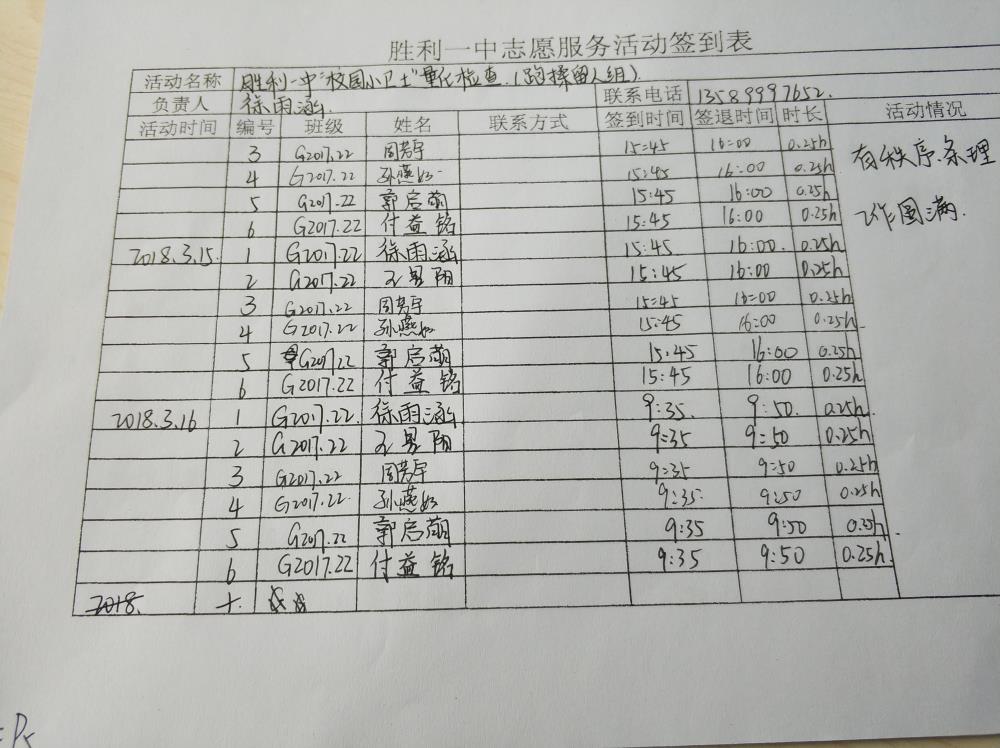 胜利一中志愿服务活动签到表
活动名称 胜利一中"校园小卫士"量化检查.(跑操留人组).
负责人 徐雨涵. 联系电话 13589997652.
活动时间 编号 班级 姓名 联系方式 签到时间 签退时间 时长 活动情况
3 G2017.22 周芳宇 15:45 16:00 0.25h 有秩序.条理
4 G2017.22 孙燕如 15:45 16:00 0.25h
5 G2017.22 郭启萌 15:45 16:00 0.25h 工作圆满.
6 G2017.22 付益铭 15:45 16:00 0.25h
2018.3.15 1 G2017.22 徐雨涵 15:45 16:00 0.25h
2 G2017.22 王昱阳 15:45 16:00 0.25h
3 G2017.22 周芳宇 15:45 16:00 0.25h
4 G2017.22 孙燕如 15:45 16:00 0.25h
5 G2017.22 郭启萌 15:45 16:00 0.25h
6 G2017.22 付益铭 15:45 16:00 0.25h
2018.3.16 1 G2017.22 徐雨涵 9:35 9:50 0.25h
2 G2017.22 王昱阳 9:35 9:50 0.25h
3 G2017.22 周芳宇 9:35 9:50 0.25h
4 G2017.22 孙燕如 9:35 9:50 0.25h
5 G2017.22 郭启萌 9:35 9:50 0.25h
6 G2017.22 付益铭 9:35 9:50 0.25h
2018.